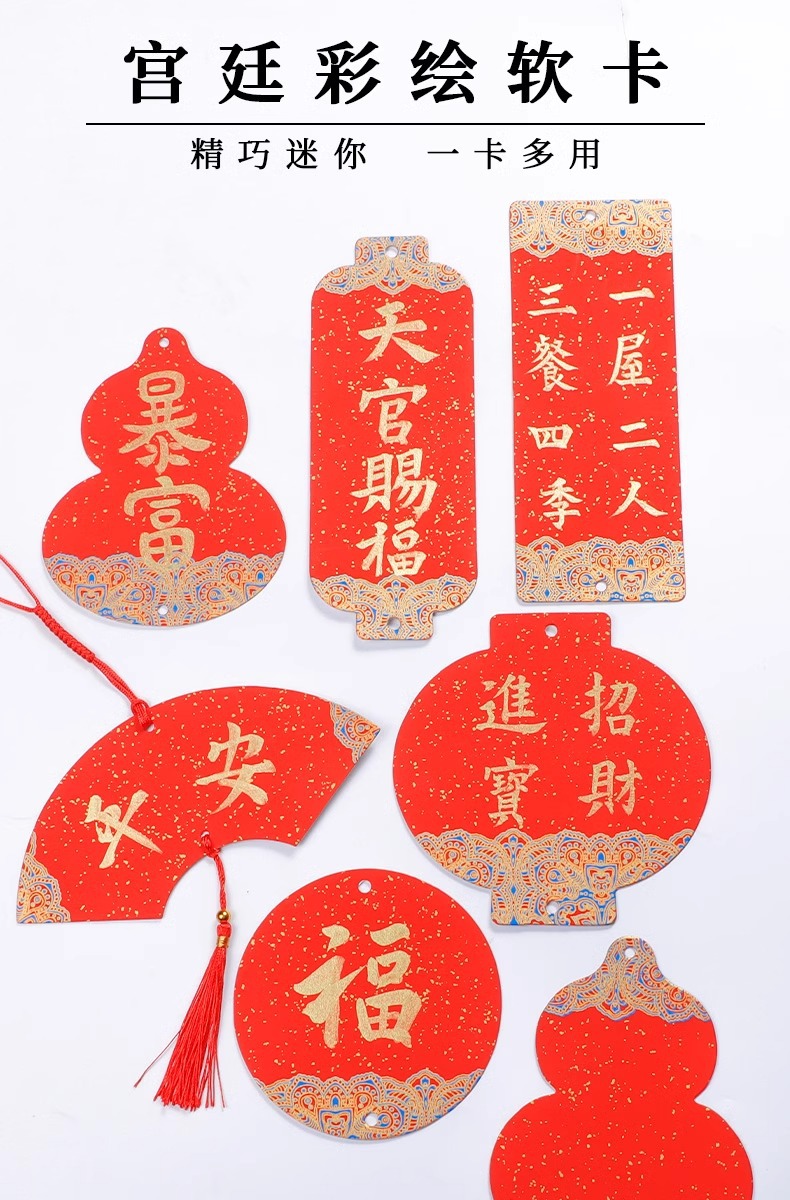 宫廷彩绘软卡
精巧迷你 一卡多用
暴富
天官賜福
一屋二人
三餐四季
安
招財
進寶
福